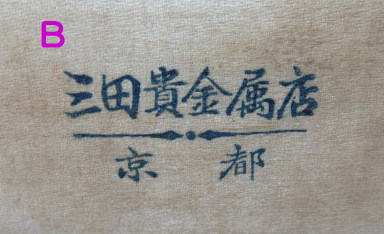 B
三田貴金属店
京都